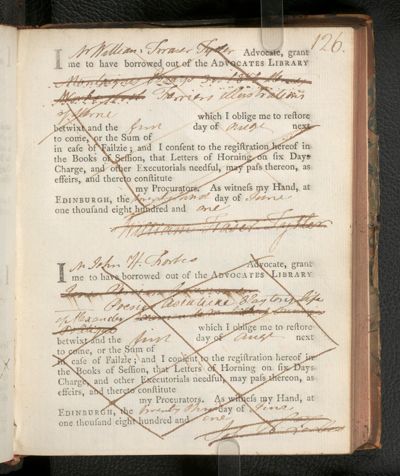 126.
I Mr William Fraser Tytler Advocate, grant
me to have borrowed out of the ADVOCATES LIBRARY
Ferriers illustrations
of Sterne which I oblige me to restore
betwixt and the first day of Augt next
to come, or the Sum of
in case of Failzie; and I consent to the registration hereof in
the Books of Session, that Letters of Horning on six Days
Charge, and other Executorials needful, may pass thereon, as
effeirs, and thereto constitute
my Procurators. As witness my Hand, at
EDINBURGH, the twenty second day of June
one thousand eight hundred and one
William Fraser Tytler
I Mr John H. Forbes Advocate, grant
me to have borrowed out of the ADVOCATES LIBRARY
Asiaticae life
of
which I oblige me to restore
betwixt and the first day of Augt next
to come, or the Sum of
in case of Failzie; and I consent to the registration hereof in
the Books of Session, that Letters of Horning on six Days
Charge, and other Executorials needful, may pass thereon, as
effeirs, and thereto constitute
my Procurators. As witness my Hand, at
EDINBURGH, the twenty third day of June
one thousand eight hundred and one